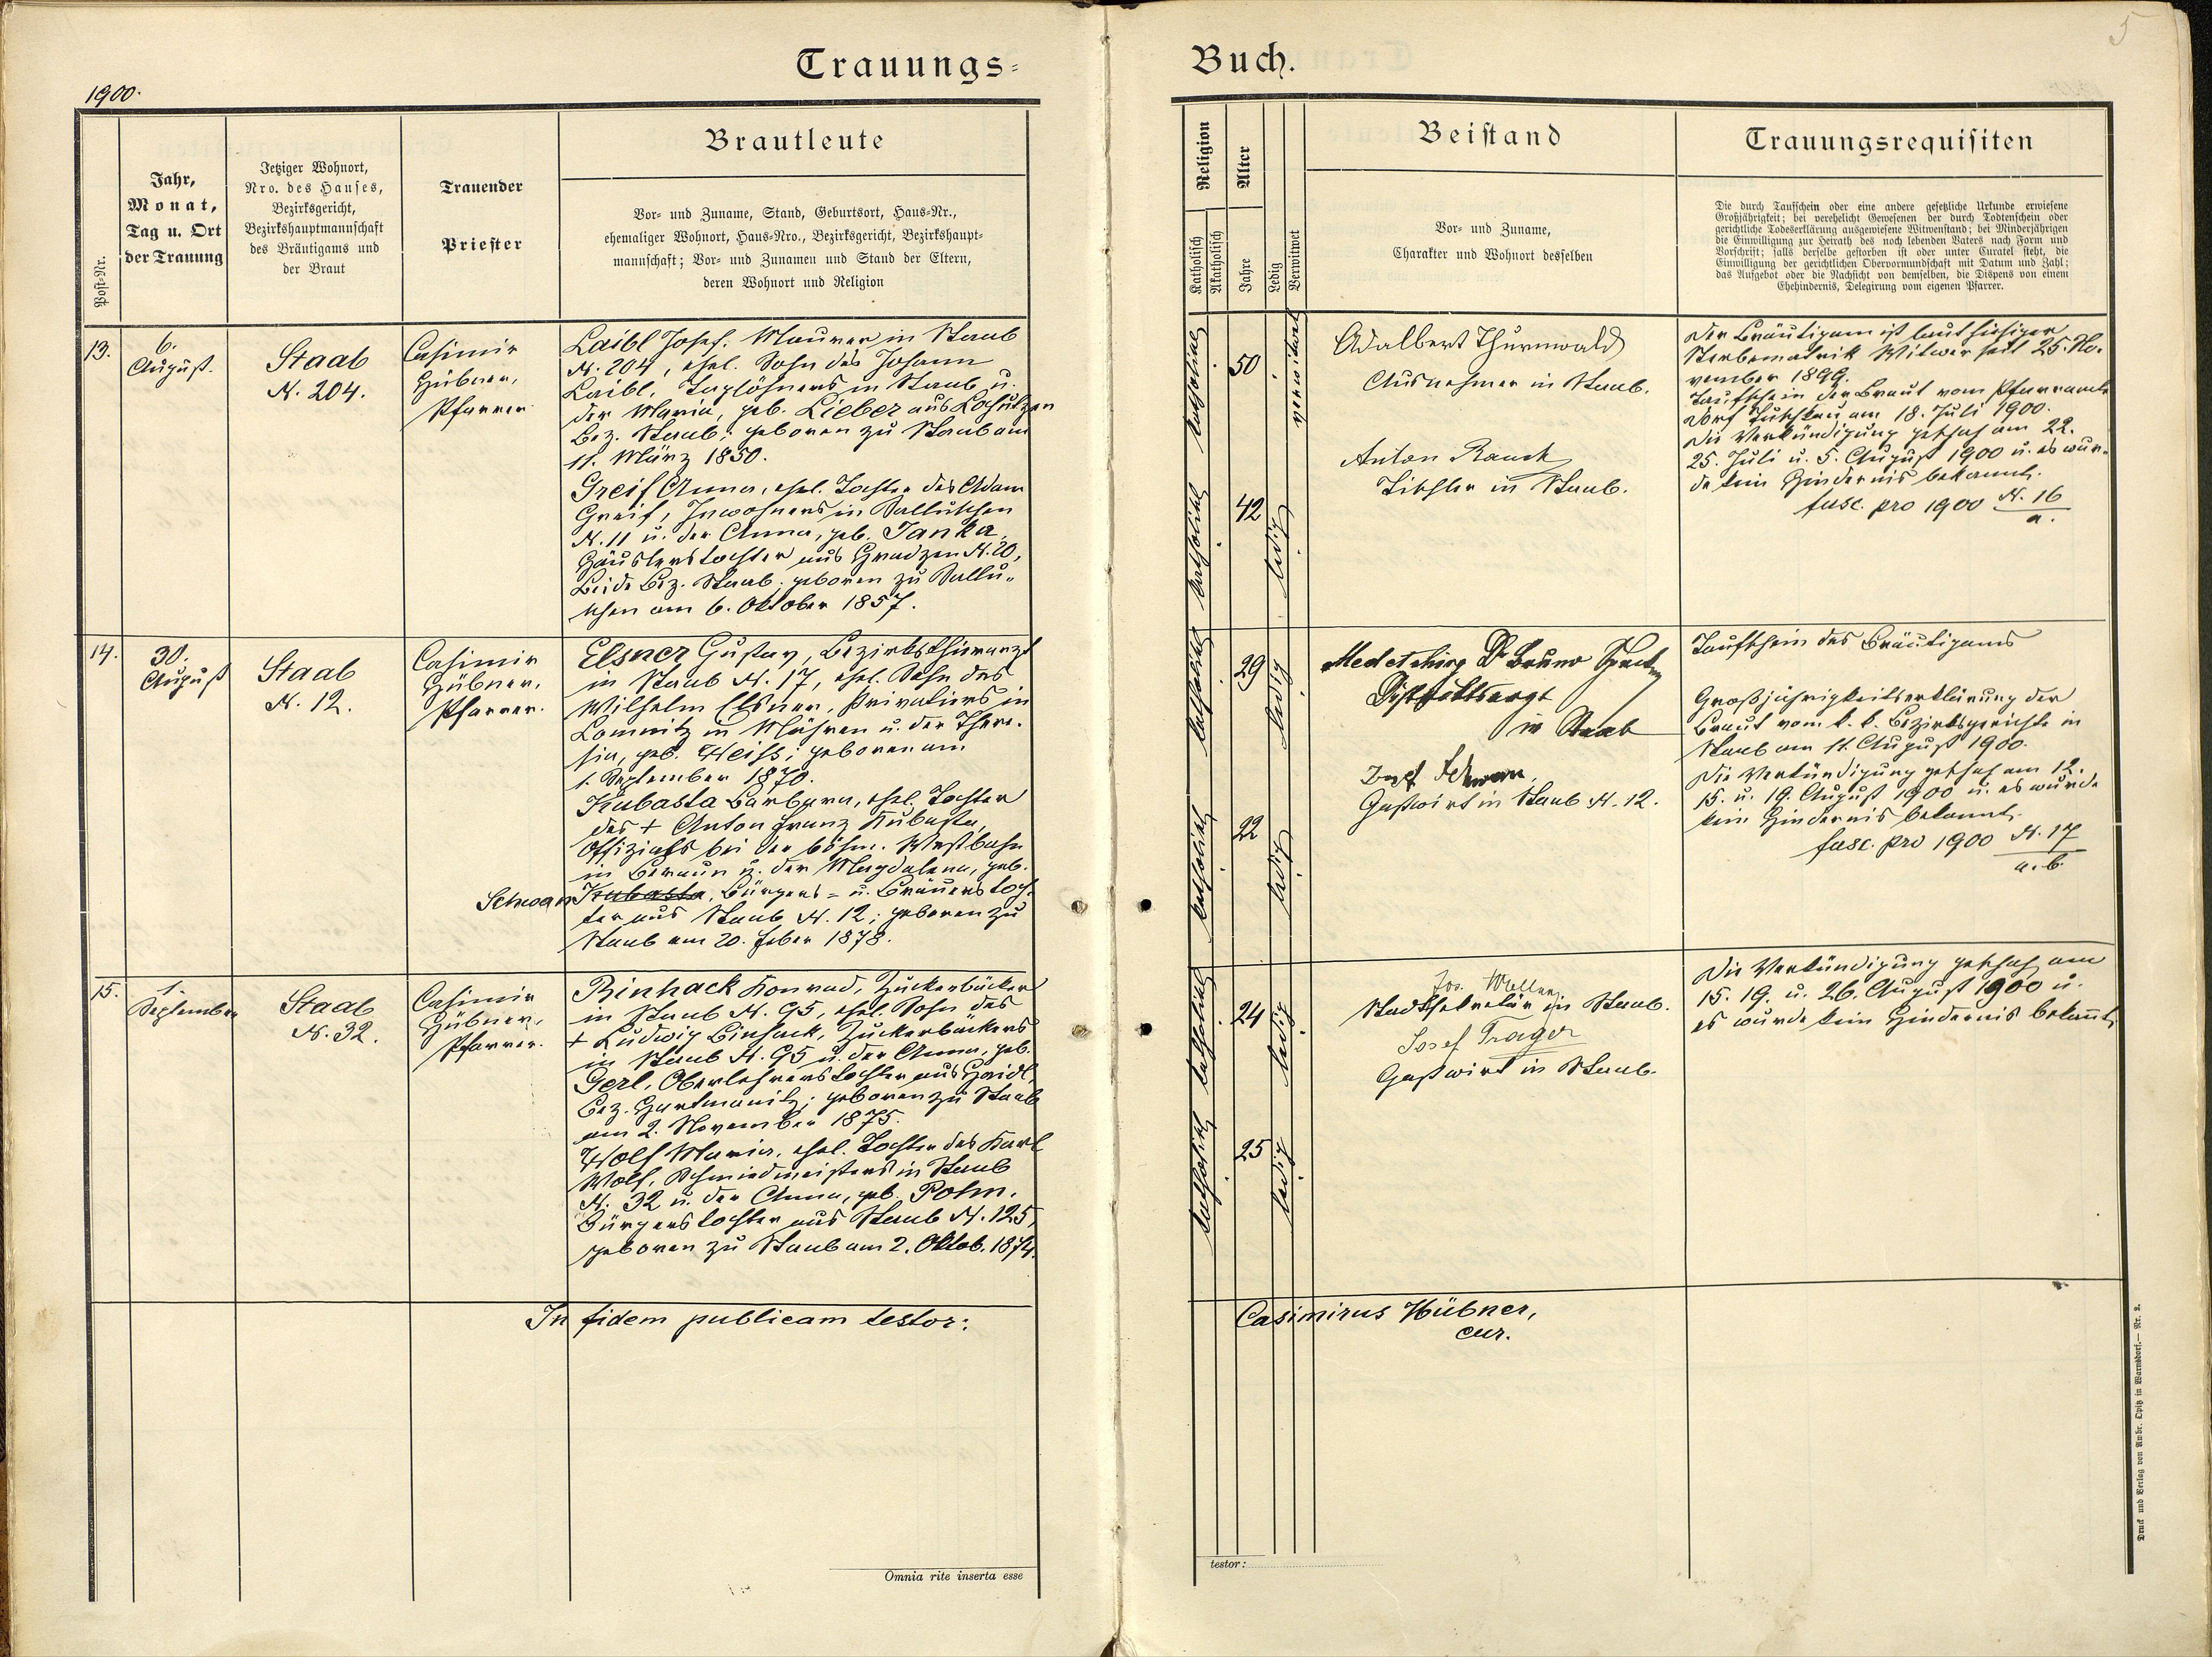 Trauungs=
1900.
Post-Nr.
Jahr,
Monat,
Tag u. Ort
der Trauung
Jetziger Wohnort,
Nro. des Hauses,
Bezirksgericht,
Bezirkshauptmannschaft
des Bräutigams und
der Braut
Trauender
Priester
Brautleute
Vor- und Zuname, Stand, Geburtsort, Haus-Nr.,
ehemaliger Wohnort, Haus-Nro., Bezirksgericht, Bezirkshaupt-
mannschaft; Vor- und Zunamen und Stand der Eltern,
deren Wohnort und Religion
13.
6.
August.
Staab
N. 204.
Casimir
Hübner,
Pfarrer.
Laibl Josef, Maurer in Staab
N. 204, ehel. Sohn des Johann
Laibl, Taglöhners in Staab u.
der Maria, geb. Lieber aus Lossutzen
Bez. Staab; geboren zu Staab am
11. März 1850.
Greif Anna, ehel. Tochter des Adam
Greif, Inwohners in
N. 11 u. der Anna, geb. Janka,
Häuslerstochter aus Gradzen N. 20,
beide Bez. Staab, geboren zu
am 6. Oktober 1857.
14.
30.
August
Staab
N. 12.
Casimir
Hübner,
Pfarrer.
Elsner Gustav, Bezirksthierarzt
in Staab N. 17, ehel. Sohn des
Wilhelm Elsner, Privatiers in
Lomnitz in Mähren u. der There-
sia, geb. Weiss; geboren am
1. September 1870.
Kubasta Barbara, ehel. Tochter
des + Anton Franz Kubasta,
Offizials bei der böhm. Westbahn
in Beraun u. der Magdalena, geb.
Schwarz Kubasta, Bürgers- u. Bräuerstoch-
ter aus Staab N. 12; geboren zu
Staab am 20. Feber 1878.
15.
1.
September
Staab
N. 32.
Casimir
Hübner,
Pfarrer.
Binhack Konrad, Zuckerbäcker
in Staab N. 95, ehel. Sohn des
+ Ludwig Binhack, Zuckerbäckers
in Staab N. 95 u. der Anna, geb.
Gerl, Oberlehrerstochter aus Haidl,
Bez. Hartmanitz; geboren zu Staab
am 2. November 1875.
Wolf Maria, ehel. Tochter des Karl
Wolf, Schmiedmeisters in Staab
N. 32 u. der Anna, geb. Pohn.
Bürgerstochter aus Staab N. 125,
geboren zu Staab am 2. Oktob. 1874.
In fidem publicam testor:
Omnia rite inserta esse
Buch.
5
Religion
Katholisch
Akatholisch
Alter
Jahre
Ledig
Verwitwet
Beistand
Vor- und Zuname,
Charakter und Wohnort desselben
Trauungsrequisiten
Die durch Taufschein oder eine andere gesetzliche Urkunde erwiesene
Großjährigkeit; bei verehelicht Gewesenen der durch Todtenschein oder
gerichtliche Todeserklärung ausgewiesene Witwenstand; bei Minderjährigen
die Einwilligung zur Heirath des noch lebenden Vaters nach Form und
Vorschrift; falls derselbe gestorben ist oder unter Curatel steht, die
Einwilligung der gerichtlichen Obervormundschaft mit Datum und Zahl;
das Aufgebot oder die Nachsicht von demselben, die Dispens von einem
Ehehindernis, Delegirung vom eigenen Pfarrer.
katholisch
50
verwitwet
Adalbert Thurnwald
Ausnehmer in Staab.
Der Bräutigam ist laut hiesiger
Sterbematrik Witwer seit 25. No-
vember 1899.
Taufschein der Braut vom Pfarramte
Dorf Tuschkau am 18. Juli 1900.
Die Verkündigung geschah am 22.
25. Juli u. 5. August 1900 u. es wur-
de kein Hindernis bekannt.
fasc. pro 1900 N. 16
a.
katholisch
42
ledig
Anton Rausch
Tischler in Staab.
katholisch
29
ledig
Dr Bruno
Distriktsarzt
in Staab
Taufschein des Bräutigams
Großjährigkeitserklärung der
Braut vom k. k. Bezirksgerichte in
Staab am 11. August 1900.
Die Verkündigung geschah am 12.
15. u. 19. August 1900 u. es wurde
kein Hindernis bekannt.
fasc. pro 1900 N. 17
a. b.
katholisch
22
ledig
Josef Schwarz,
Gastwirt in Staab N. 12.
katholisch
24
ledig
Jos.
Stadtsekretär in Staab.
Josef Trager
Gastwirt in Staab.
Die Verkündigung geschah am
15. 19. u. 26. August 1900 u.
es wurde kein Hindernis bekannt.
katholisch
25
ledig
Casimirus Hübner,
cur.
testor:
Druck und Verlag von Ambr. Opitz in Warnsdorf.— Nr. 2.